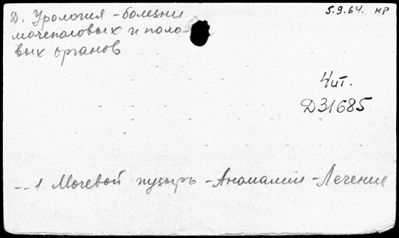 Д. Урология - болезни
мочеполовых и поло-
вых органов
5.9.64. нр
Чит.
Д31685
--1 Мочевой пузырь - Аномалии - Лечение